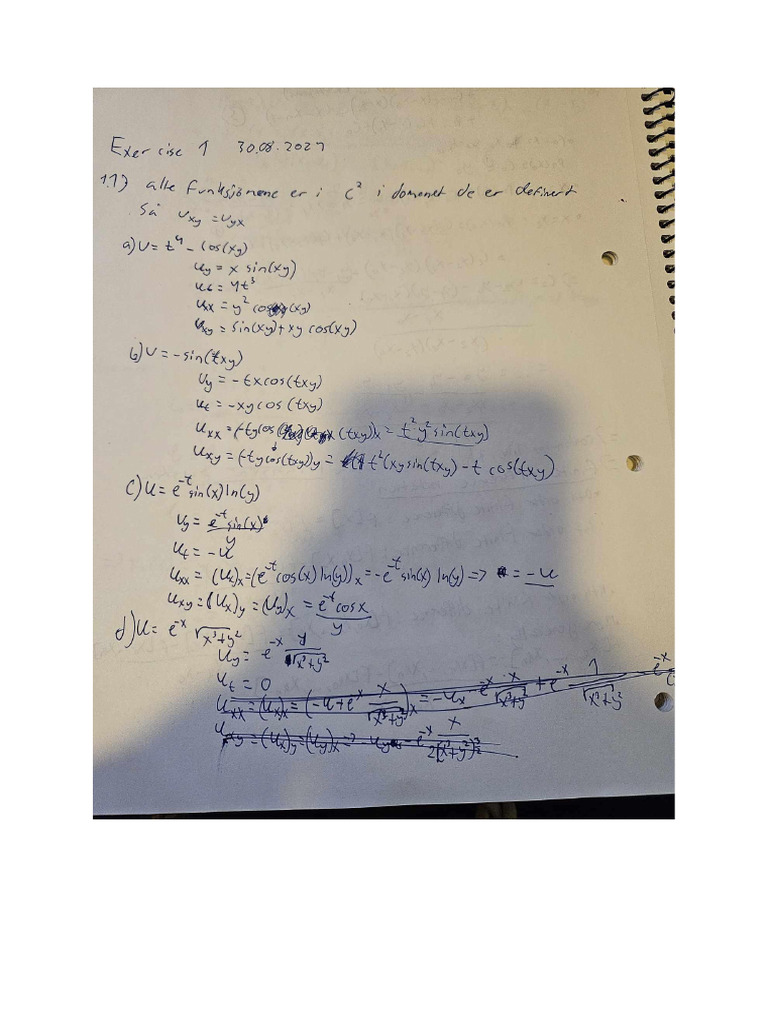 Exercise 1 30.08.2027
1.1) alle funksjonene er i C² i domenet de er definert
Så u_xy = u_yx
a) U = t⁴ - cos(xy)
u_y = x sin(xy)
u_t = 4t³
u_xx = y² cos(xy)
u_xy = sin(xy) + xy cos(xy)
b) U = -sin(txy)
U_y = -tx cos(txy)
u_t = -xy cos(txy)
u_xx = (-ty cos (txy))_x = t²y² sin(txy)
u_xy = (-ty cos(txy))_y = t²(xy sin(txy) - t cos(txy)
c) U = e^-t sin(x) ln(y)
u_y = e^-t sin(x) / y
u_t = -u
u_xx = (u_x)_x = (e^-t cos(x) ln(y))_x = -e^-t sin(x) ln(y) => = -u
u_xy = (u_x)_y = (u_y)_x = e^-t cosx / y
d) U = e^-x √(x³+y²)
u_y = e^-x y / √(x³+y²)
u_t = 0